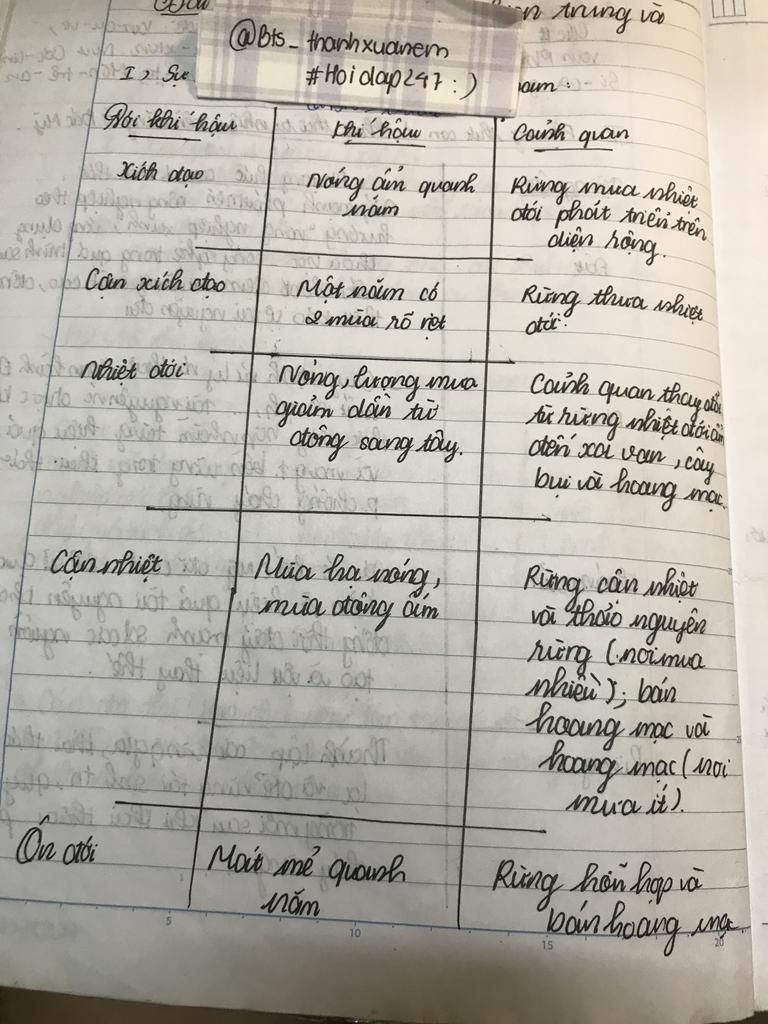 trung và
@Bts_thanhxuanem
#Hoidap247 :)
I, Sự
nam:
Đới khí hậu
Khí hậu
Cảnh quan
Xích đạo
Nóng ẩm quanh
năm
Rừng mưa nhiệt
đới phát triển trên
diện rộng.
Cận xích đạo
Một năm có
2 mùa rõ rệt
Rừng thưa nhiệt
đới.
Nhiệt đới
Nóng, lượng mưa
giảm dần từ
đông sang tây.
Cảnh quan thay đổi
từ rừng nhiệt đới ẩm
đến xa van, cây
bụi và hoang mạc.
Cận nhiệt
Mùa hạ nóng,
mùa đông ấm
Rừng cận nhiệt
và thảo nguyên
rừng (nơi mưa
nhiều); bán
hoang mạc và
hoang mạc (nơi
mưa ít).
Ôn đới
Mát mẻ quanh
năm
Rừng hỗn hợp và
bán hoang mạc
5
10
15
20